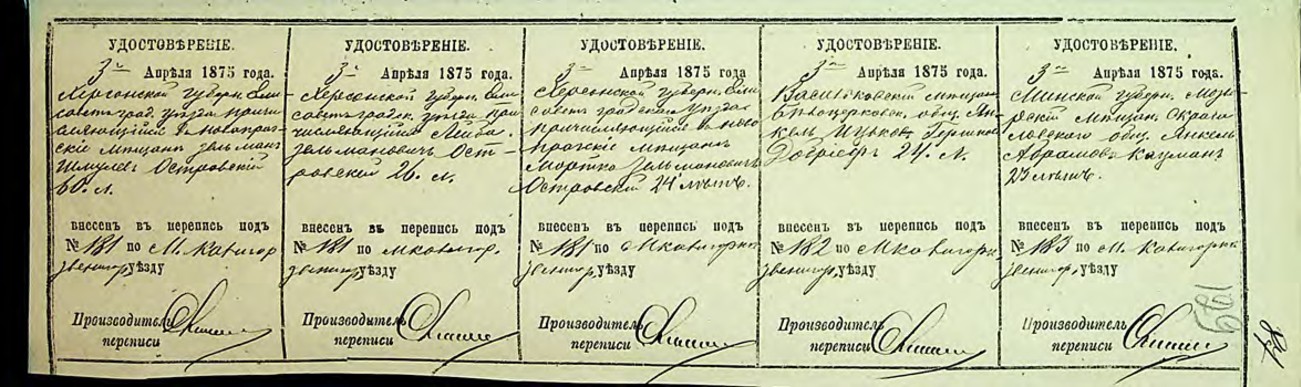 УДОСТОВѢРЕНІЕ.
3го Апрѣля 1875 года.
Херсонской губерн. Ели
саветград. уезда причи
сляющійся Новопраг
скій мещанъ Зельманъ
Шмулевъ Островскій
60. л.
внесенъ въ перепись подъ
№ 181 по М. Кавигор
звенигор, уѣзду
Производитель
переписи
УДОСТОВѢРЕНІЕ.
3го Апрѣля 1875 года.
Херсонской губерн. Ели
саветградск. уезда при
числяющійся Лейба
Зельмановичъ Ост-
ровскій 26. л.
внесенъ въ перепись подъ
№ 181 по М Кавигор.
звенигор, уѣзду
Производитель
переписи
УДОСТОВѢРЕНІЕ.
3го Апрѣля 1875 года
Херсонской губерн. Ели
саветградскаго уезда
причисляющійся Ново
прагскіе мещанъ
Мортко Зельмановичъ
Островскій 24 летъ.
внесенъ въ перепись подъ
№ 181 по М Кавигорк.
звенигор, уѣзду
Производитель
переписи
УДОСТОВѢРЕНІЕ.
3го Апрѣля 1875 года.
Васильковскій мещан.
Белоцерковск. общ. Ян
кель Ицьков
24. л.
внесенъ въ перепись подъ
№ 182 по М Кавигорк.
звенигор, уѣзду
Производитель
переписи
УДОСТОВѢРЕНІЕ.
3го Апрѣля 1875 года.
Минской губерн. Мозы
рскій мещан. Скрыга
ловскаго общ. Янкель
Абрамовъ Кацманъ
23 летъ.
внесенъ въ перепись подъ
№ 183 по М. Кавигорк.
звенигор, уѣзду
Производитель
переписи
1089